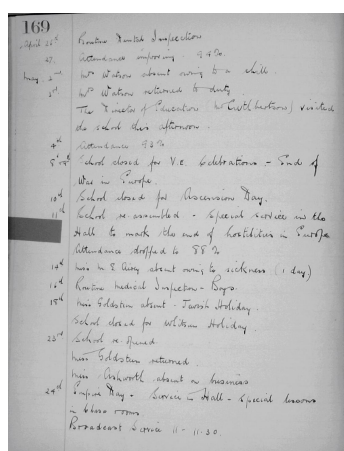 169
April 26th Routine Dental Inspection
27. Attendance improving. 94%.
May 2nd Mrs Watson absent owing to a chill.
3rd. Mrs Watson returned to duty.
The Director of Education visited
the school this afternoon.
4th Attendance 93%
8th & 9th School closed for V.E. Celebrations - End of
War in Europe.
10th School closed for Ascension Day.
11th School re-assembled - Special Service in the
Hall to mark the end of hostilities in Europe
Attendance dropped to 88%
14th Miss M E absent owing to sickness (1 day)
16th Routine Medical Inspection - Boys.
18th Miss Goldstein absent - Jewish Holiday.
School closed for Whitsun Holiday.
23rd School re-opened
Miss Goldstein returned.
Miss Ashworth absent on business
24th Empire Day - Service in Hall - Special lessons
in Class rooms
Broadcast Service 11 - 11.30.